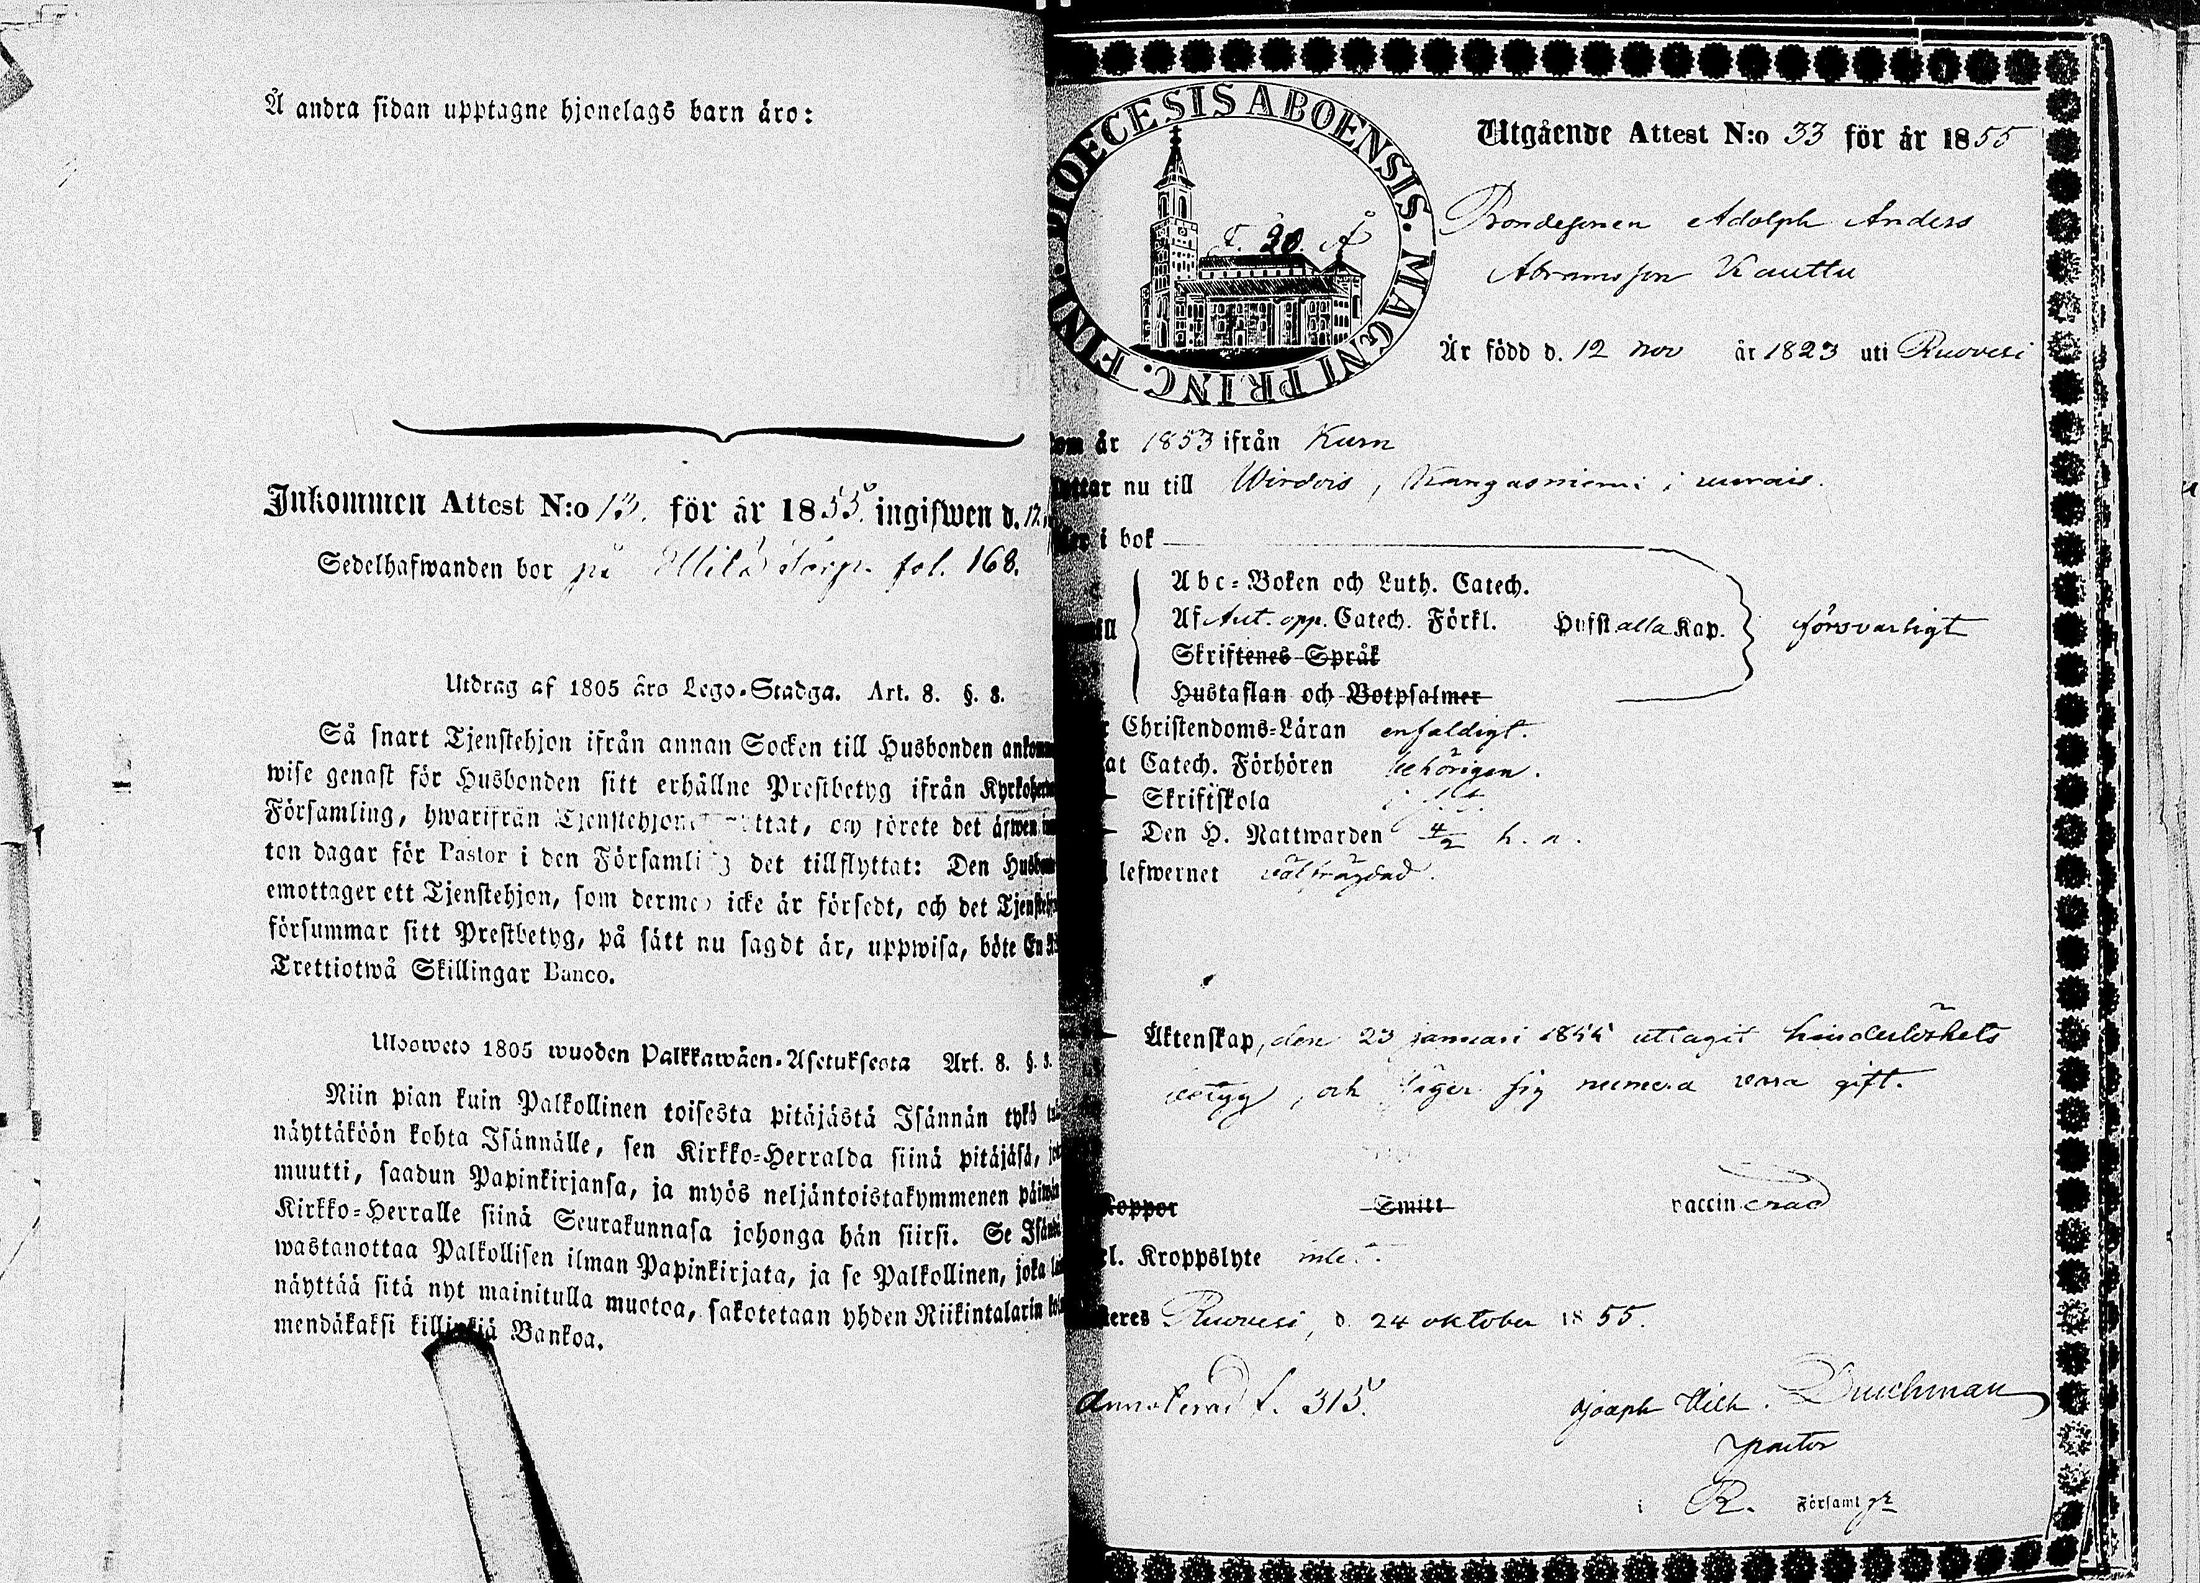 Å andra sidan upptagne hjonelags barn äro:
Inkommen Attest N:o 13. för år 1855. ingifwen d. 12
Sedelhafwanden bor på torp. fol. 168.
Utdrag af 1805 års Lego-Stadga. Art. 8. §. 8.
Så snart Tjenstehjon ifrån annan Socken till Husbonden
wise genast för Husbonden sitt erhållne Prestbetyg ifrån
Församling, hwarifrån det
ton dagar för Pastor i den det tillflyttat: Den
emottager ett Tjenstehjon, som icke är försedt, och det
försummar sitt Prestbetyg, på sätt nu sagdt är, uppwisa, böte En
Trettiotwå Skillingar Banco.
Ulosweto 1805 wuoden Palkkawäen-Asetuksesta Art. 8. §. 8.
Niin pian kuin Palkollinen toisesta pitäjästä Isännän tykö
näyttäköön kohta Isännälle, sen Kirkko-Herralda siinä pitäjäsä,
muutti, saadun Papinkirjansa, ja myös neljäntoistakymmenen
Kirkko-Herralle siinä Seurakunnasa johonga hän siirsi. Se
wastanottaa Palkollisen ilman Papinkirjata, ja se Palkollinen, joka
näyttää sitä nyt mainitulla muotoa, sakotetaan yhden Riikintalarin
mendäkaksi Bankoa.
DIOECESIS ABOENSIS. MAGNI PRINC. FINL.
F. 20. Å
Utgående Attest N:o 33 för år 1855
Bondesonen Adolph Anders
Abramsson Kauttu
Är född d. 12 nov år 1823 uti Ruovesi
år 1853 ifrån Kuru
nu till Wirdois,
i bok
Abc-Boken och Luth. Catech.
Af Aut. opp. Catech. Förkl. Hufst alla Kap. försvarligt
Skriftenes Språk
Hustaflan och Botpsalmer
Christendoms-Läran enfaldigt.
Catech. Förhören behörigen.
Skriftskola
Den H. Nattwarden 4/2 h. a.
lefwernet välfrägdad.
Äktenskap, den 23 januari 1855 uttagit hinderlöshets
betyg, och säger sig numera vara gift.
Koppor Smitt vaccinerad
Kroppslyte intet.
Ruovesi, d. 24 oktober 1855.
Annoterad f. 315.
Joseph Vilh. Durchman
pastor
i R. Församl